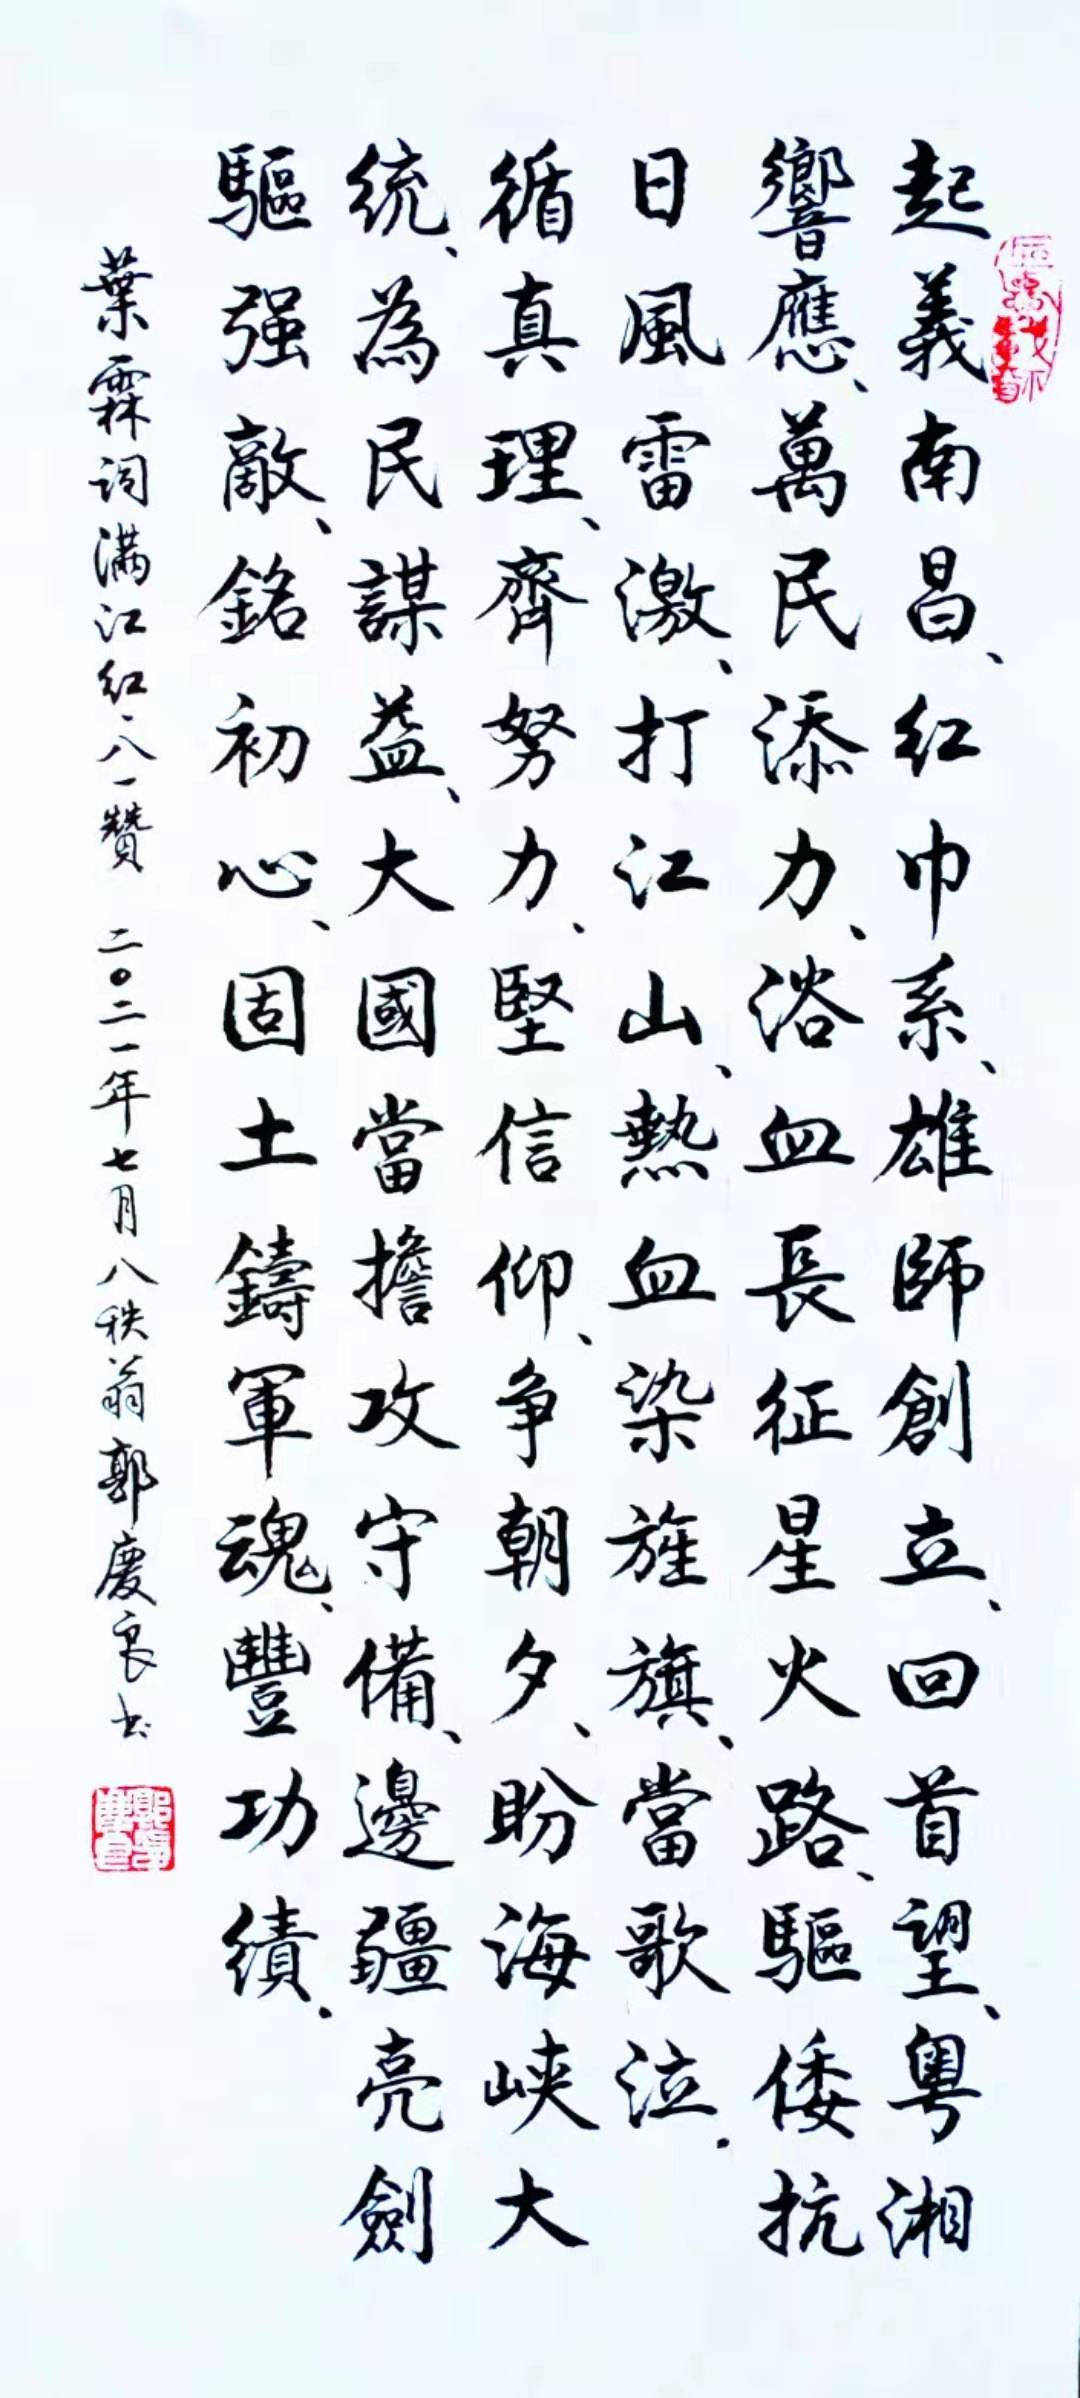 起義南昌、紅巾系、雄師創立、回首望、粤湘
響應、萬民添力、浴血長征星火路、驅倭抗
日風雷激、打江山、熱血染旌旗、當歌泣．
循真理、齊努力、堅信仰、争朝夕、盼海峽大
統、為民謀益、大國當擔攻守備、邊疆亮劍
驅强敵、銘初心、固土鑄軍魂、豐功績．
葉霖词满江红·八一贊 二〇二一年七月八秩翁郭慶良书